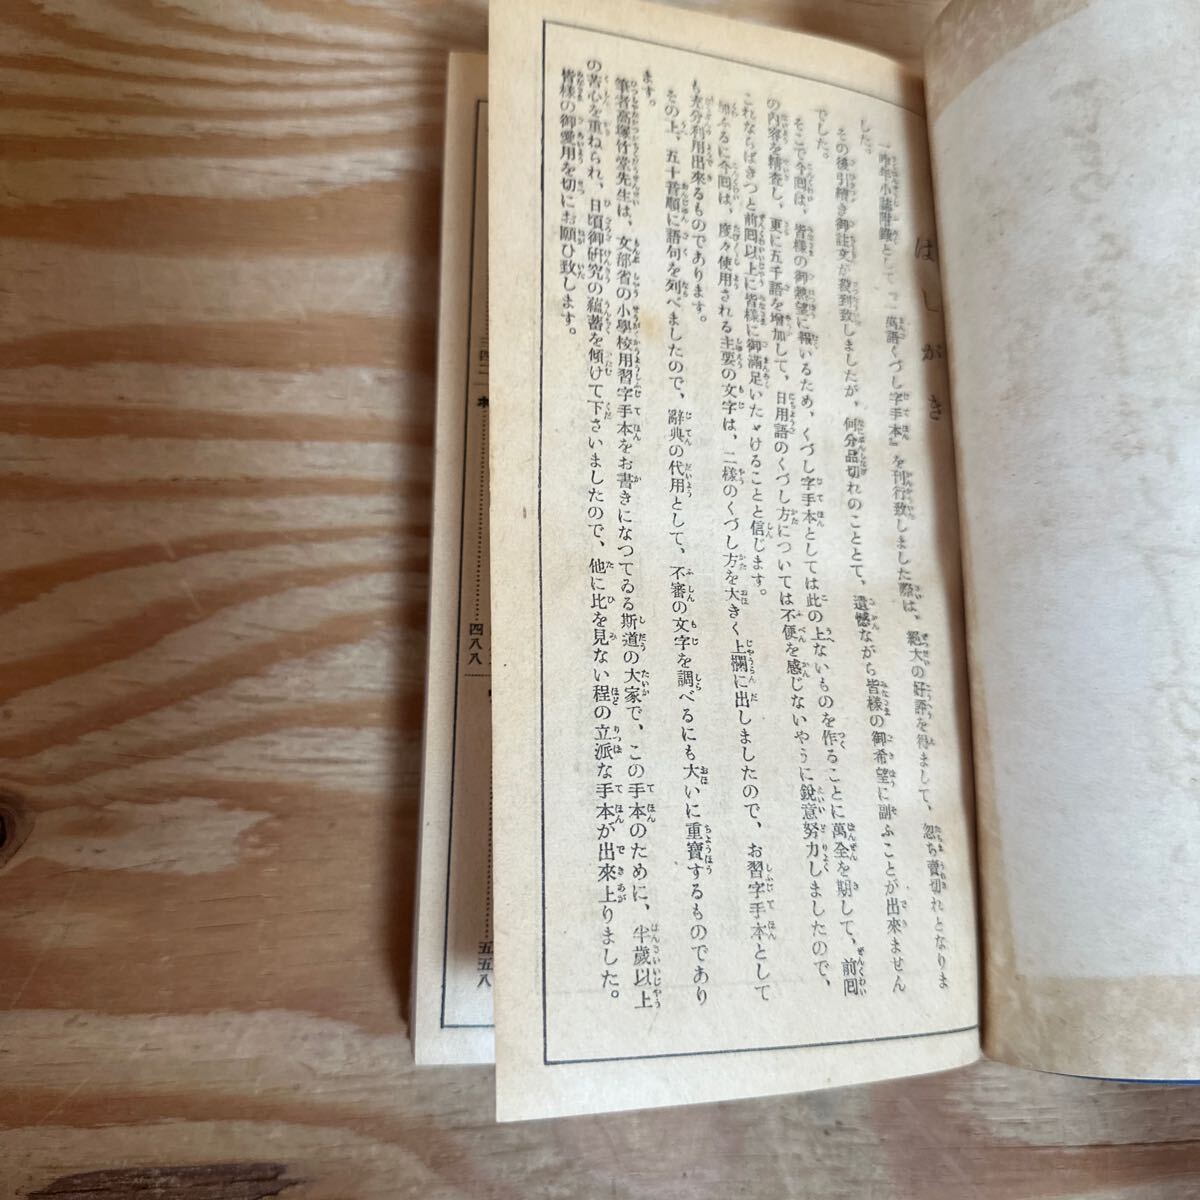 はしがき
一昨年小誌附録として『一萬語くづし字手本』を刊行致しました際は、絶大の好評を得まして、忽ち賣切れとなりま
した。
その後引續き御註文が殺到致しましたが、何分品切れのこととて、遺憾ながら皆樣の御希望に副ふことが出來ません
でした。
そこで今囘は、皆樣の御熱望に報いるため、くづし字手本としては此の上ないものを作ることに萬全を期して、前囘
の内容を精査し、更に五千語を增加して、日用語のくづし方については不便を感じないやうに銳意努力しましたので、
これならばきつと前囘以上に皆樣に御滿足いたゞけることと信じます。
加ふるに今囘は、度々使用される主要の文字は、二樣のくづし方を大きく上欄に出しましたので、お習字手本として
も充分利用出來るものであります。
その上、五十音順に語句を列べましたので、辭典の代用として、不審の文字を調べるにも大いに重寶するものであり
ます。
筆者高塚竹堂先生は、文部省の小學校用習字手本をお書きになつてゐる斯道の大家で、この手本のために、半歲以上
の苦心を重ねられ、日頃御硏究の蘊蓄を傾けて下さいましたので、他に比を見ない程の立派な手本が出來上りました。
皆樣の御愛用を切にお願ひ致します。
四八八
五五八